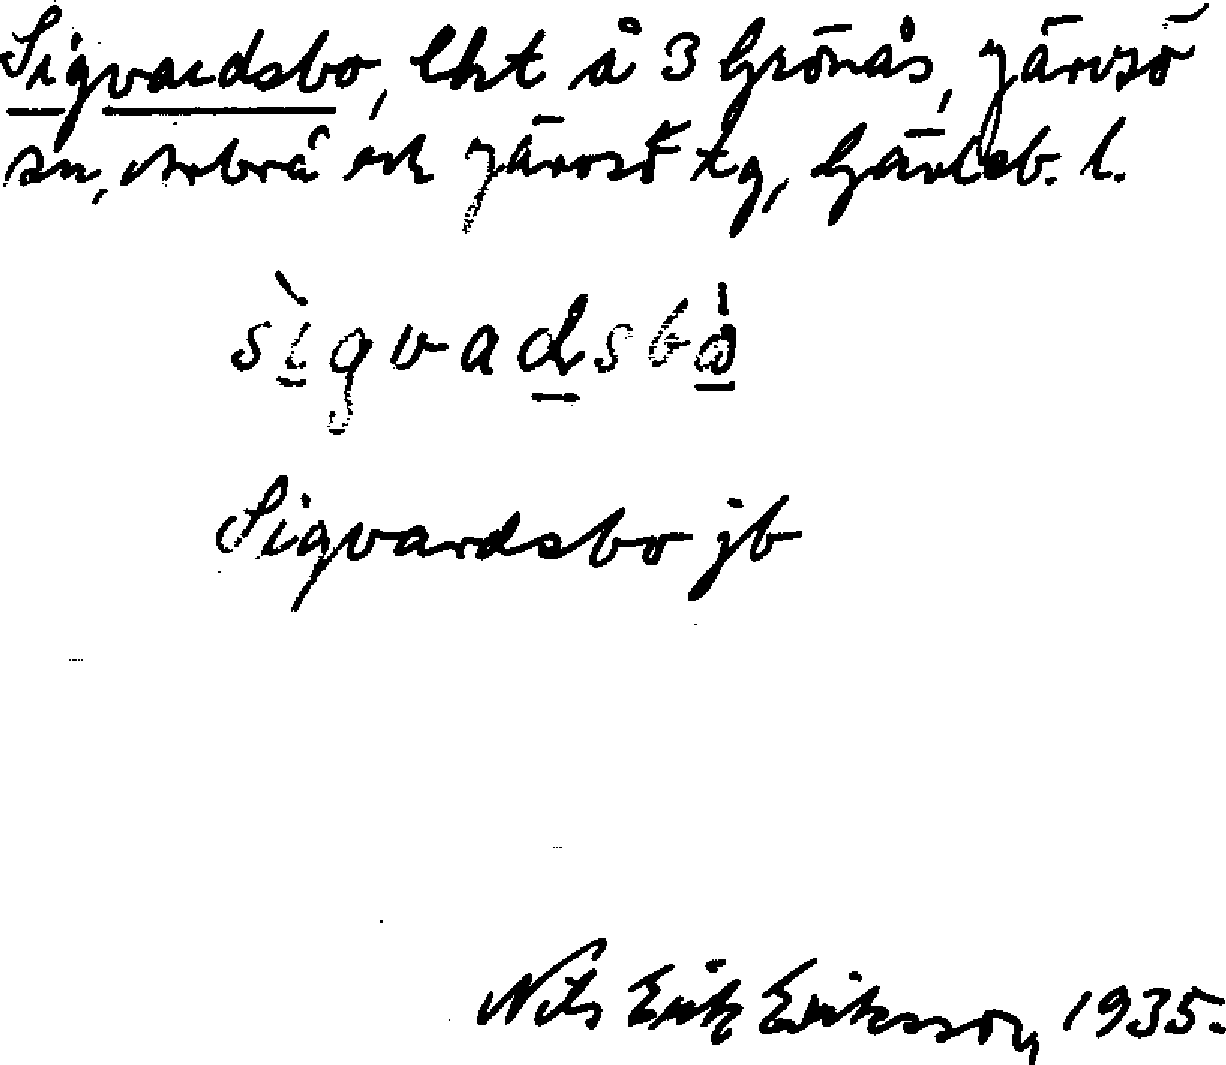 Sigvardsbo, lht å 3 Grönås, Järvsö
sn, Arbrå och Järvsö tg, Gävleb. l.
sìgvadsbò
Sigvardsbo jb
Nils Erik Eriksson, 1935.